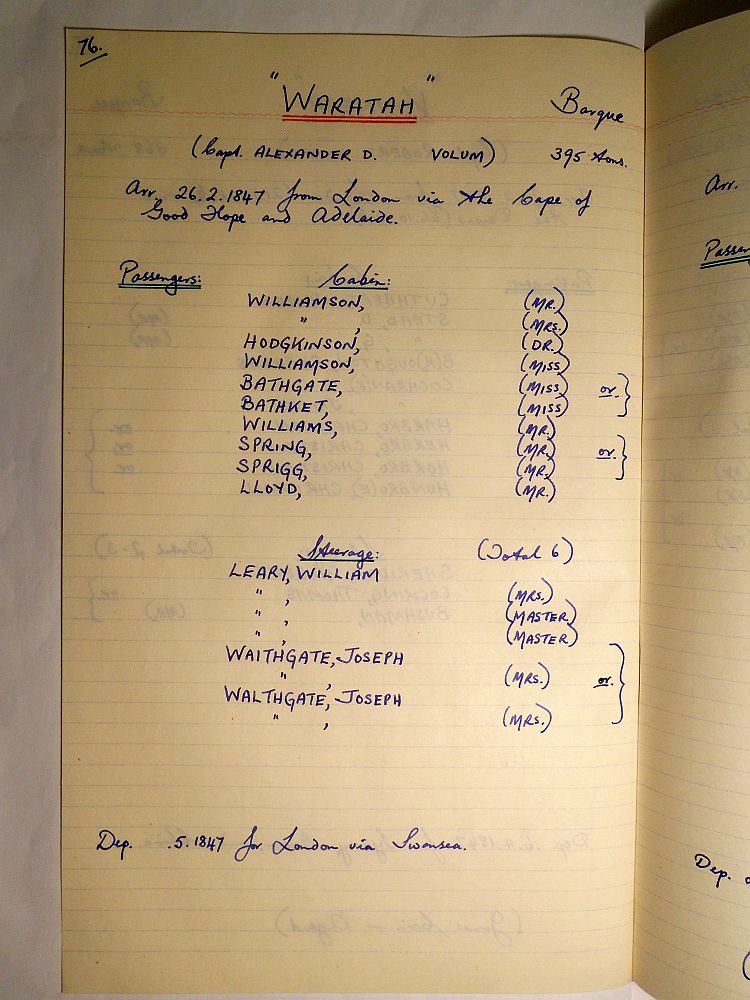 76.
"WARATAH" Barque
(Capt. ALEXANDER D. VOLUM) 395 tons.
Arr. 26.2.1847 from London via the Cape of
Good Hope and Adelaide.
Passengers: Cabin:
WILLIAMSON, (MR.)
" , (MRS.)
HODGKINSON, (DR.)
WILLIAMSON, (MISS)
BATHGATE, (MISS) or.
BATHKET, (MISS)
WILLIAMS, (MR.)
SPRING, (MR.) or.
SPRIGG, (MR.)
LLOYD, (MR.)
Steerage: (Total 6)
LEARY, WILLIAM
" , (MRS.)
" , (MASTER.)
" , (MASTER)
WAITHGATE, JOSEPH
" , (MRS.) or.
WALTHGATE, JOSEPH
" , (MRS.)
Dep. .5.1847 for London via Swansea.
Arr.
Passen
Dep.